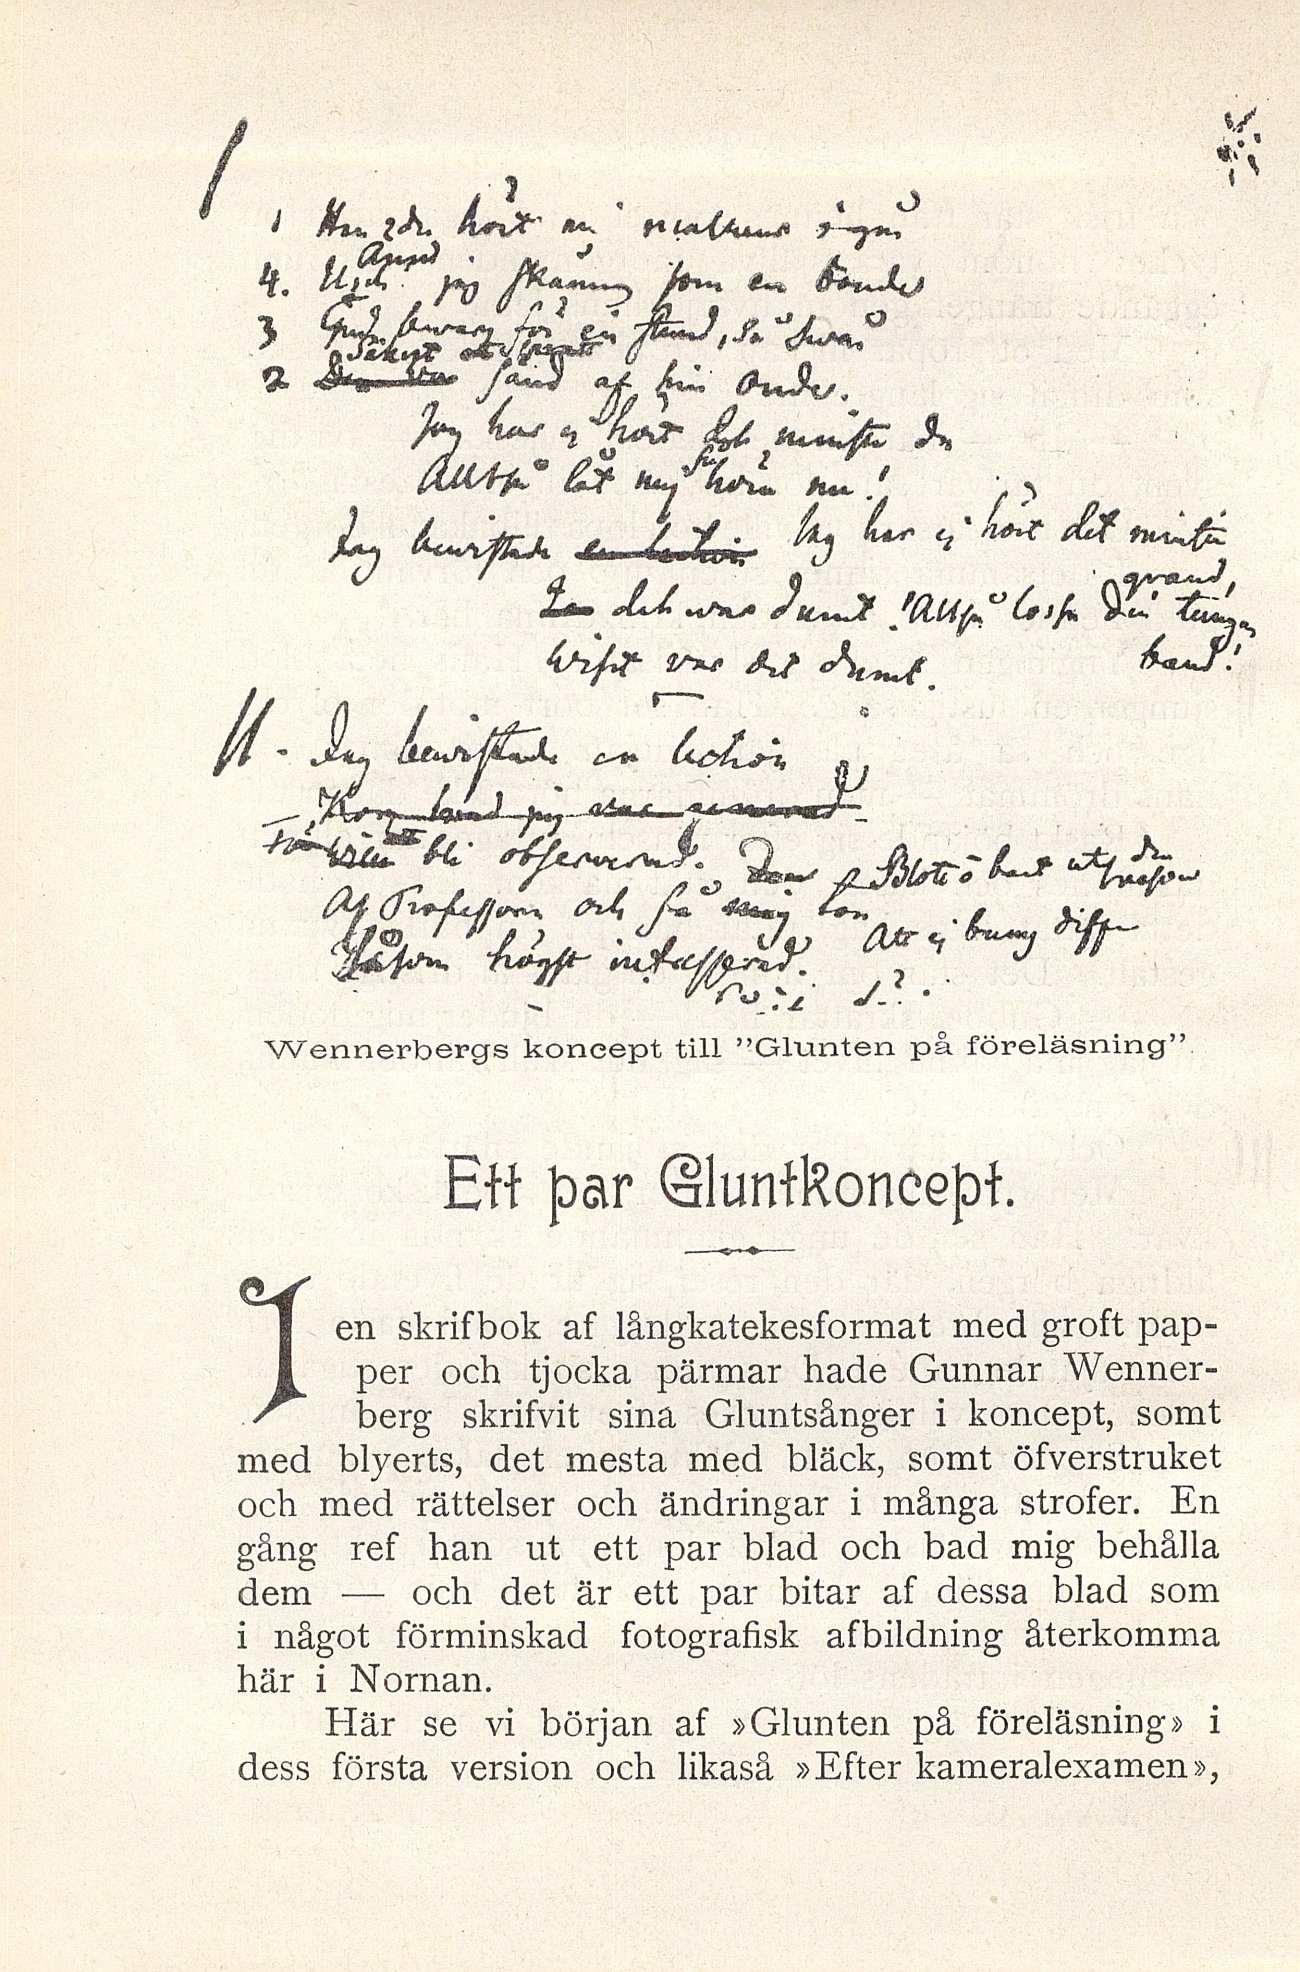 1 Har du hört min malheur i går
4. Uscht jag skäms som en bonde
3 Gud bevare för en stund, så svår
2 sänd af hin onde.
Jag har ej hört det minsta du
Alltså låt mig få höra nu!
Jag bewistade en lection Jag har ej hört det minsta
grand,
det war dumt! Alltså lossa din tungas
Wisst var det dumt. band!
II - Jag bewistade en lection
bli observerad.
Af Professorn och
Såsom högst intresserad.
Wennerbergs koncept till ”Glunten på föreläsning”.
Ett par Gluntkoncept.
I en skrifbok af långkatekesformat med groft pap-
per och tjocka pärmar hade Gunnar Wenner-
berg skrifvit sina Gluntsånger i koncept, somt
med blyerts, det mesta med bläck, somt öfverstruket
och med rättelser och ändringar i många strofer. En
gång ref han ut ett par blad och bad mig behålla
dem — och det är ett par bitar af dessa blad som
i något förminskad fotografisk afbildning återkomma
här i Nornan.
Här se vi början af »Glunten på föreläsning» i
dess första version och likaså »Efter kameralexamen»,